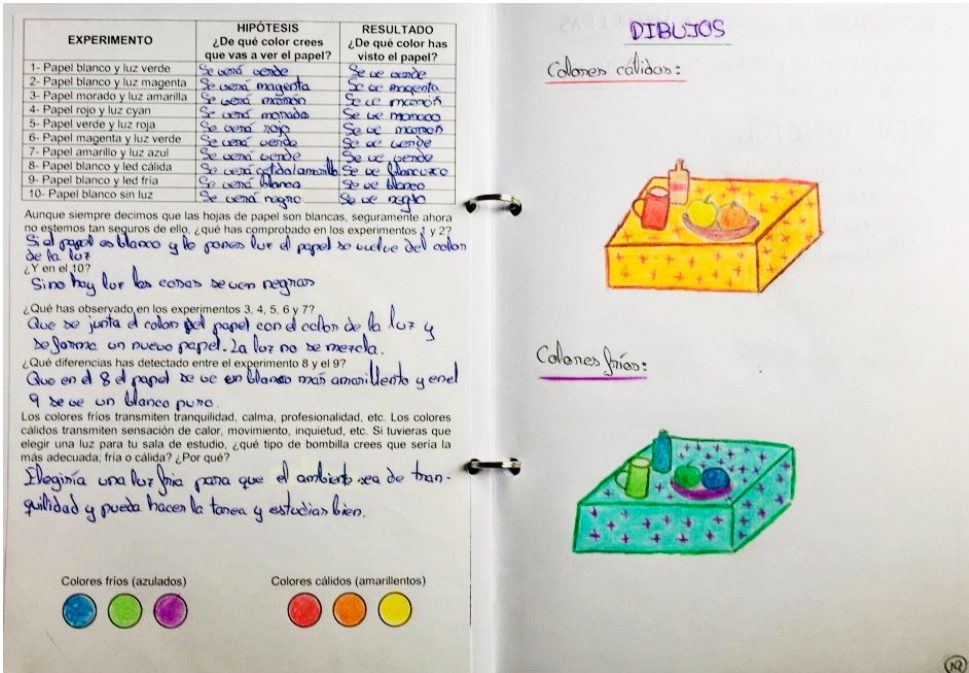 EXPERIMENTO
HIPÓTESIS
¿De qué color crees
que vas a ver el papel?
RESULTADO
¿De qué color has
visto el papel?
1- Papel blanco y luz verde Se verá verde Se ve verde
2- Papel blanco y luz magenta Se verá magenta Se ve magenta
3- Papel morado y luz amarilla Se verá marrón Se ve marrón
4- Papel rojo y luz cyan Se verá morado Se ve morado
5- Papel verde y luz roja Se verá rojo Se ve marrón
6- Papel magenta y luz verde Se verá verde Se ve verde
7- Papel amarillo y luz azul Se verá verde Se ve verde
8- Papel blanco y led cálida Se verá amarillo Se ve
9- Papel blanco y led fría Se verá blanco Se ve blanco
10- Papel blanco sin luz Se verá negro Se ve negro
Aunque siempre decimos que las hojas de papel son blancas, seguramente ahora
no estemos tan seguros de ello, ¿qué has comprobado en los experimentos 1 y 2?
Si el papel es blanco y le pones luz el papel se vuelve del color
de la luz
¿Y en el 10?
Si no hay luz las cosas se ven negras
¿Qué has observado en los experimentos 3, 4, 5, 6 y 7?
Que se junta el color del papel con el color de la luz y
se forma un nuevo papel. La luz no se mezcla.
¿Qué diferencias has detectado entre el experimento 8 y el 9?
Que en el 8 el papel se ve en blanco más amarillento y en el
9 se ve un blanco puro.
Los colores fríos transmiten tranquilidad, calma, profesionalidad, etc. Los colores
cálidos transmiten sensación de calor, movimiento, inquietud, etc. Si tuvieras que
elegir una luz para tu sala de estudio, ¿qué tipo de bombilla crees que sería la
más adecuada, fría o cálida? ¿Por qué?
Elegiría una luz fria para que el ambiente sea de tran-
quilidad y pueda hacer la tarea y estudiar bien.
Colores fríos (azulados)
Colores cálidos (amarillentos)
DIBUJOS
Colores cálidos:
Colores fríos:
19